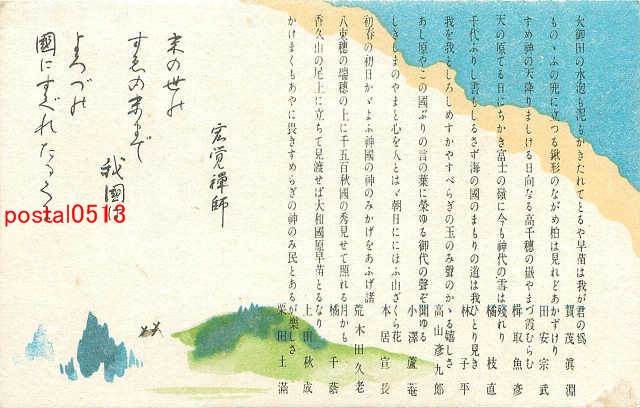 大御田の水泡も泥もかきたれてとるや早苗は我が君の爲
賀茂眞淵
ものゝふの兜に立つる鍬形のながめ柏は見れどあかずけり
田安宗武
すめ神の天降りましける日向なる高千穂の嶽やまづ霞むらむ
楫取魚彦
天の原てる日にちかき富士の嶺に今も神代の雪は殘れり
橘枝直
千代ふりし書もしるさず海の國のまもりの道は我ひとり見き
林子平
我を我としろしめすかやすべらぎの玉のみ聲のかゝる嬉しさ
高山彦九郎
あし原やこの國ぶりの言の葉に榮ゆる御代の聲ぞ聞ゆる
小澤蘆菴
しきしまのやまと心を人とはゞ朝日ににほふ山ざくら花
本居宣長
初春の初日かゞよふ神國の神のみかげをあふげ諸
荒木田久老
八束穂の瑞穂の上に千五百秋國の秀見せて照れる月かも
橘千蔭
香久山の尾上に立ちて見渡せば大和國原早苗とるなり
上田秋成
かけまくもあやに畏きすめらぎの神のみ民とあるが樂しさ
栗田土滿
宏覚禪師
末の世の
すゑの末まで
我國は
よろづの
國にすぐれたる
postal0513